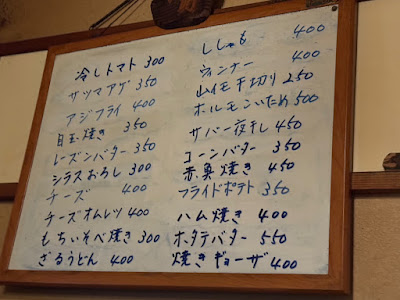 冷しトマト 300
サツマアゲ 350
アジフライ 400
目玉焼き 350
レーズンバター 350
シラスおろし 300
チーズ 400
チーズオムレツ 400
もちいそべ焼き 300
ざるうどん 400
ししゃも 400
ウィンナー 400
山イモ千切り 250
ホルモンいため 500
サバ一夜干し 450
コーンバター 350
赤魚焼き 450
フライドポテト 350
ハム焼き 400
ホタテバター 550
焼きギョーザ 400